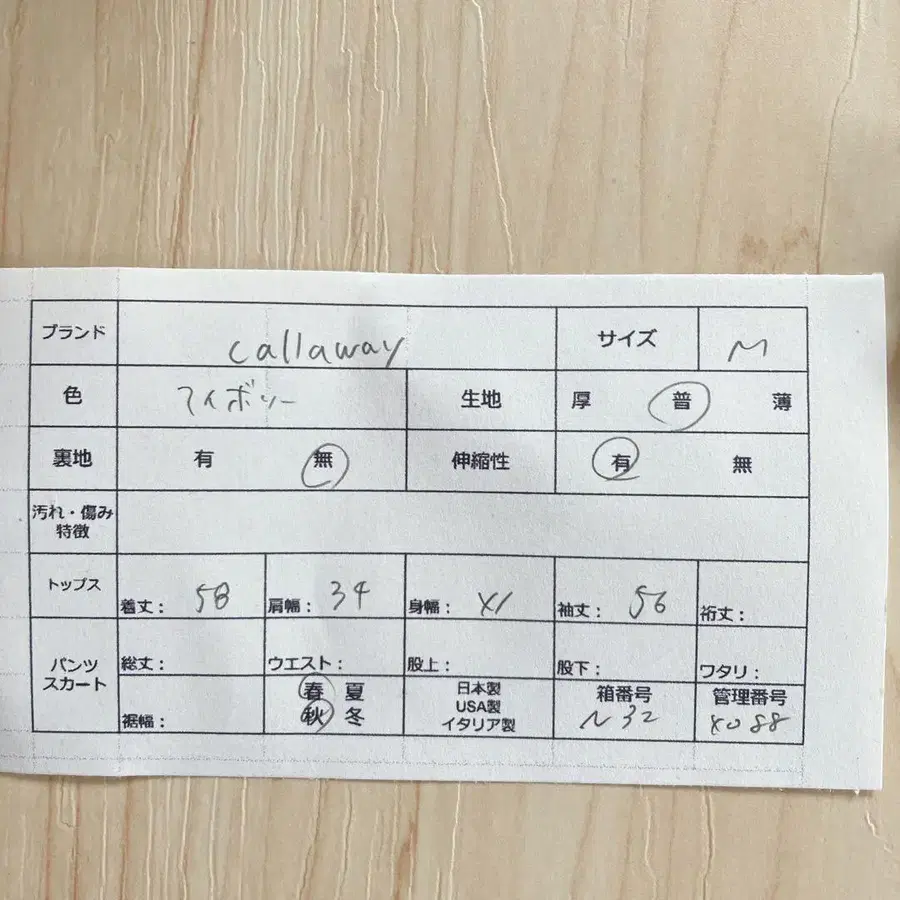 ブランド callaway サイズ M
色 アイボリー 生地 厚 普 薄
裏地 有 無 伸縮性 有 無
汚れ・傷み
特徴
トップス 着丈： 58 肩幅： 34 身幅： 41 袖丈： 56 裄丈：
パンツ
スカート
総丈： ウエスト： 股上： 股下： ワタリ：
裾幅：
春 夏
秋 冬
日本製
USA製
イタリア製
箱番号
N32
管理番号
4088